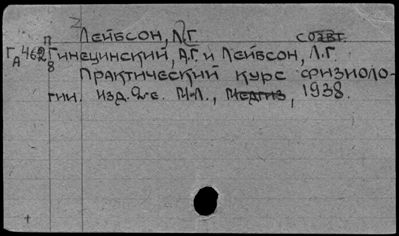 Лейбсон, Л.Г. соавт.
Г 462 Гинецинский, А.Г. и Лейбсон, Л.Г.
А 8 Практический курс физиоло-
гии. Изд. 2-е. М-Л., Медгиз, 1938.